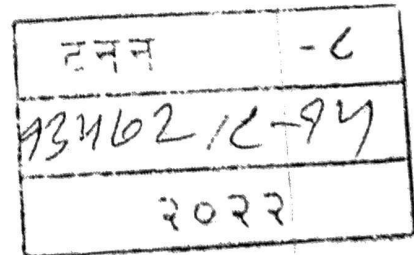 टनन -८
१३५६२/८-१५
२०२२